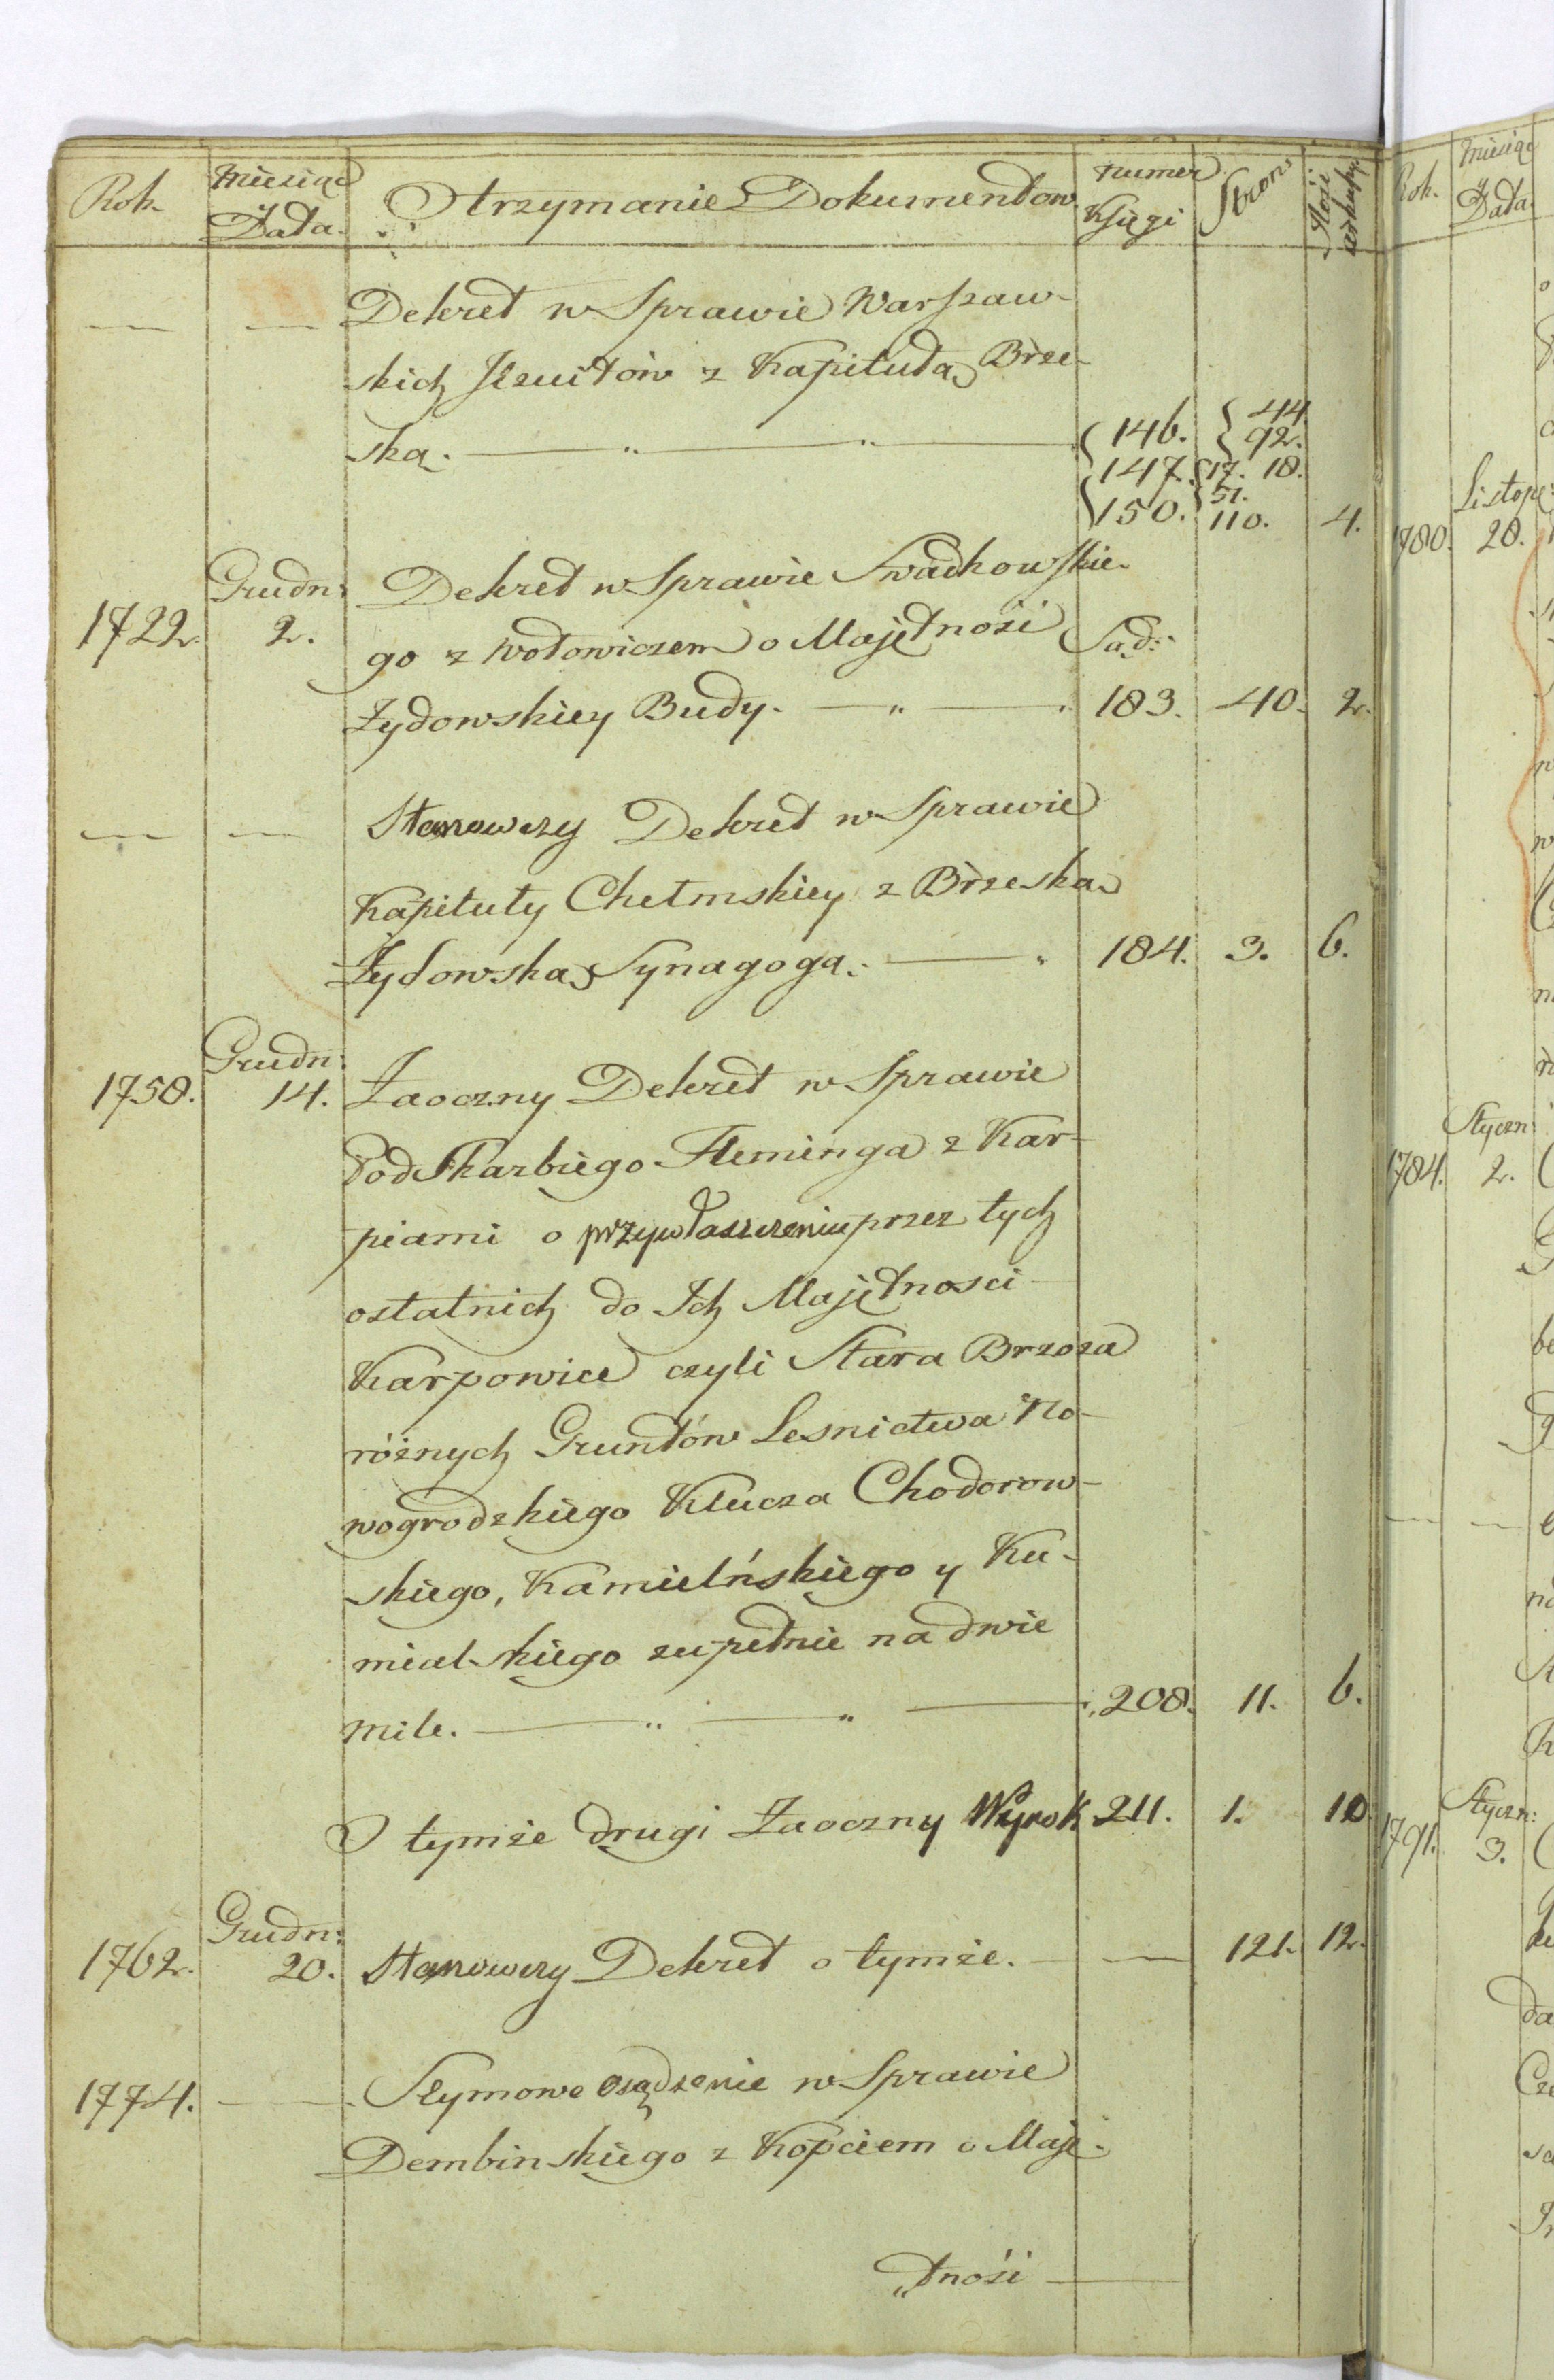 Rok. Miesiąc Data. Otrzymanie Dokumentow numer Księgi Stron: Ilośi arkuszy.
— — Dekret w Sprawie Warszaw-
skich Jezuitów z Kapitułą Brze-
ską. — " — " — 146. 44. 92.
147. 17. 18.
150. 51. 110. 4.
1722. Grudn: 2. Dekret w Sprawie Swadkowskie-
go z Wołowiczem o Majętnośi Sąd:
Żydowskiey Budy. — " — 183. 40. 2.
— — Stanowczy Dekret w Sprawie
Kapituły Chełmskiey z Brzeską
Żydowską Synagogą. — " 184. 3. 6.
1758. Grudn: 14. Zaoczny Dekret w Sprawie
Podskarbiego Fleminga z Kar-
piami o przywłaszczeniu przez tych
ostatnich do Ich Majętnosci
Karpowice czyli Stara Brzoza
różnych Gruntów Lesnictwa No-
wogrodzkiego Klucza Chodorow-
skiego, Kamielńskiego y Ku-
mialskiego zupełnie na dwie
mile. — " — " — 208. 11. 6.
O tymże drugi Zaoczny Wyrok 211. 1. 10.
1762. Grudn: 20. Stanowczy Dekret o tymże. — — 121. 12.
1774. — Seymowe osądzenie w Sprawie
Dembinskiego z Kopciem o Maję-
„tnośi —
Rok. Miesiąc Data.
1780. Listop: 28.
1784. Styczn: 2.
1791. Styczn: 3.